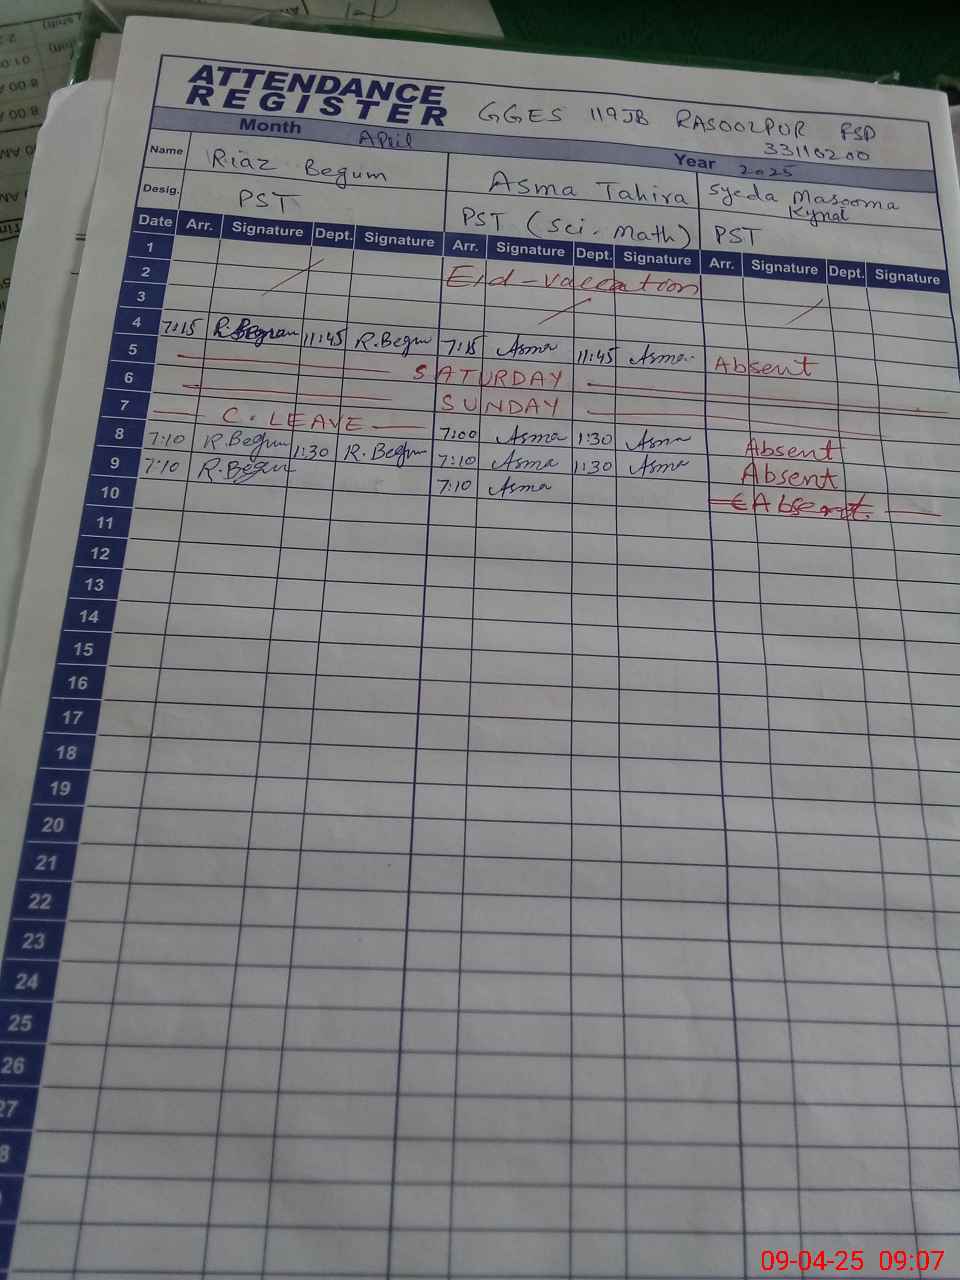 ATTENDANCE
REGISTER
GGES 119JB RASOOLPUR FSD
33110200
Month April Year 2025
Name Riaz Begum Asma Tahira Syeda Masooma
Desig. PST PST (Sci. Math) PST
Date Arr. Signature Dept. Signature Arr. Signature Dept. Signature Arr. Signature Dept. Signature
1
2 Eid-vaccation
3
4 7:15 R.Begum 11:45 R.Begum 7:15 Asma 11:45 Asma Absent
5 SATURDAY
6 SUNDAY
7 C. LEAVE 7:00 Asma 1:30 Asma Absent
8 7:10 R.Begum 1:30 R.Begum 7:10 Asma 1:30 Asma Absent
9 7:10 R.Begum 7:10 Asma Absent.
10
11
12
13
14
15
16
17
18
19
20
21
22
23
24
25
26
27
8
09-04-25 09:07